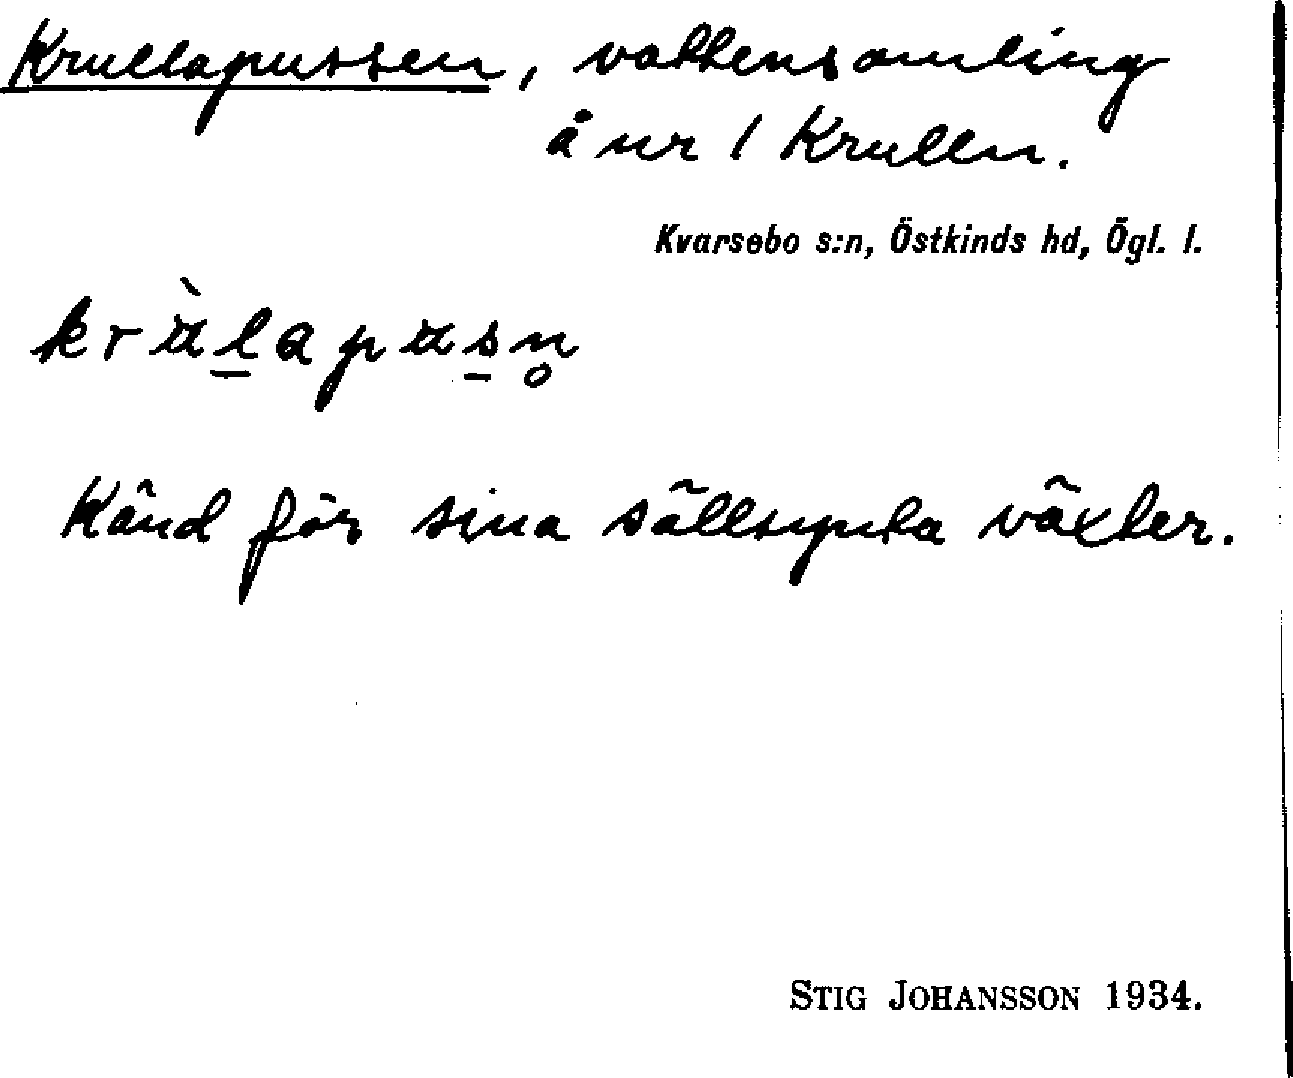 Krullapussen, vattensamling
å nr 1 Krullen.
Kvarsebo s:n, Östkinds hd, Ögl. l.
krùl̲apus̲n̥
Känd för sina sällsynta växter.
STIG JOHANSSON 1934.